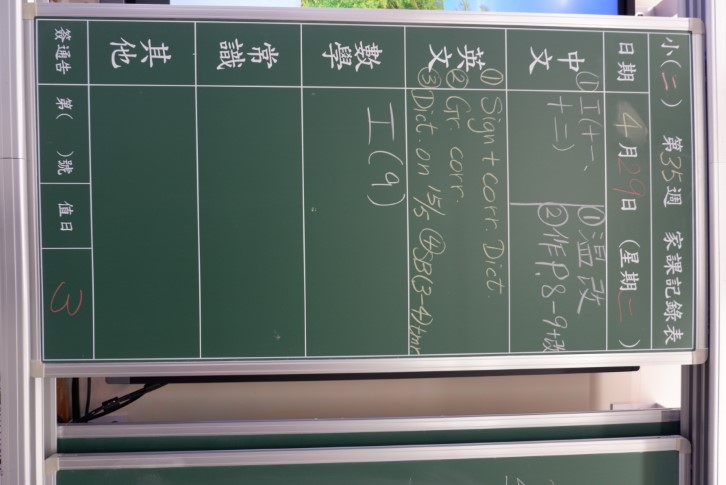 小(二) 第35週 家課記錄表
日期 4月29日 (星期二)
中文 ①工(十一、十二)
①溫改
②作P.8-9+改
英文 ①Sign + corr. Dict.
②Gr. corr.
③Dict. on 15/5 ④SB(3-4)tmr
數學 工(9)
常識
其他
簽通告 第( )號 值日 3